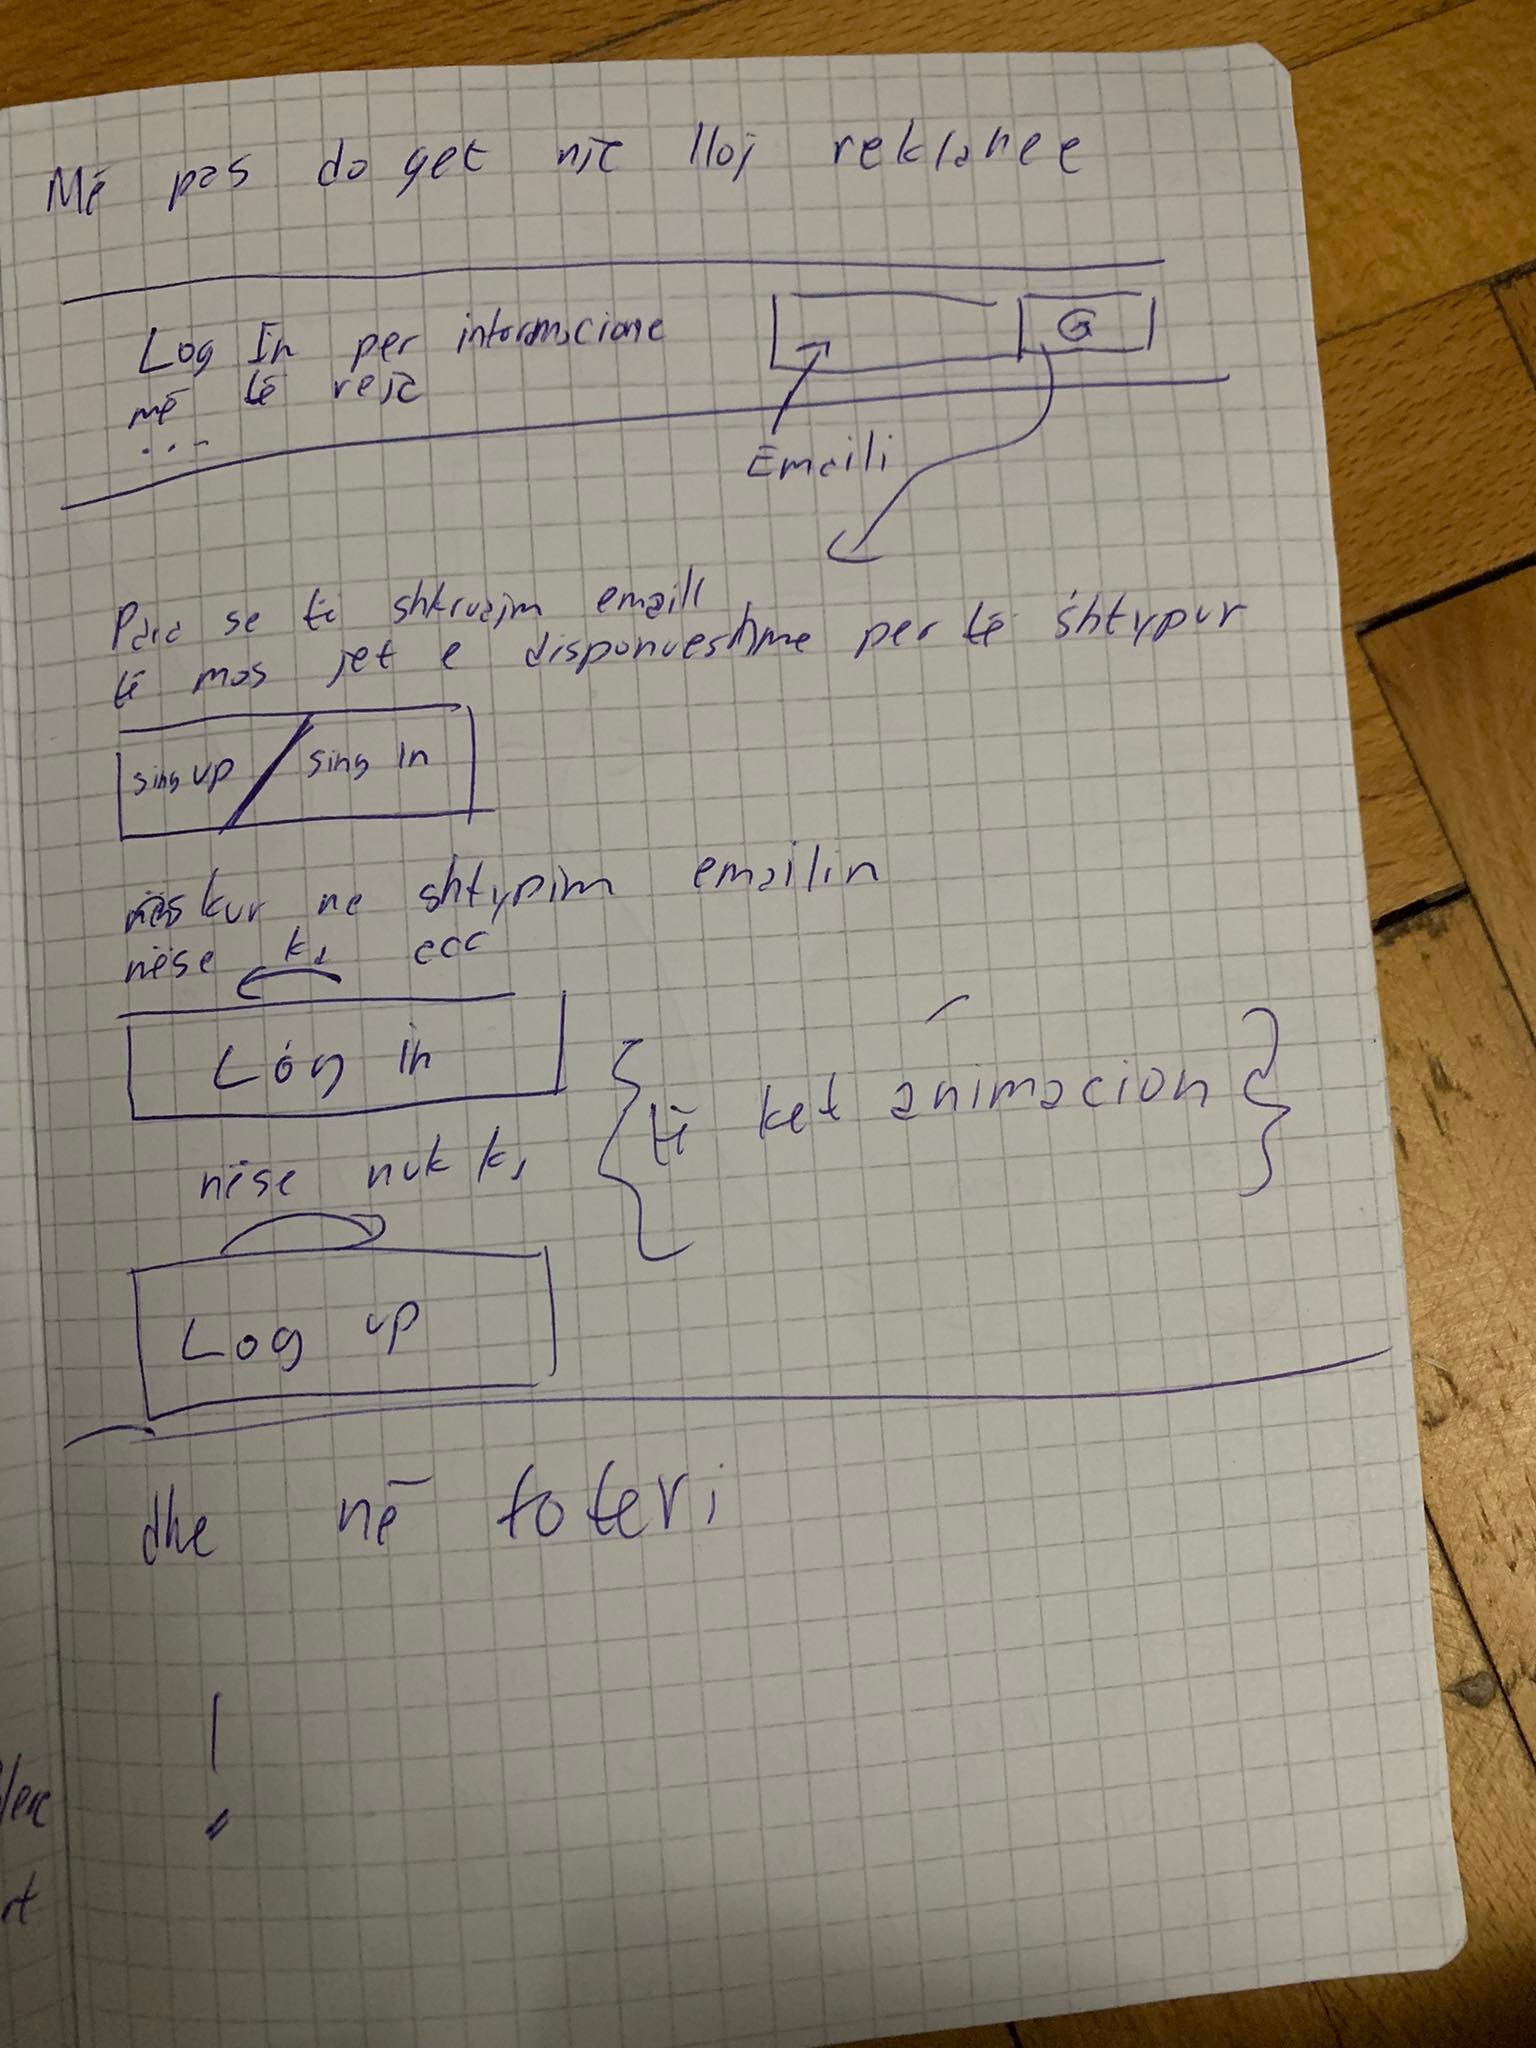 Më pas do get një lloj reklamee
Log In per informacione
më të reja
...
G
Emaili
Para se të shkruajm emaill
të mos jet e disponueshme per të shtypur
sing up / sing in
kur ne shtypim emailin
nëse ka acc
Log in
{ të ket animacion }
nëse nuk ka
Log up
dhe në foteri